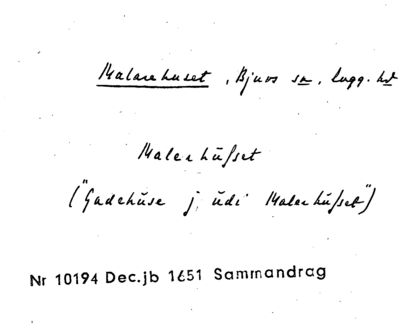 Malarehuset, Bjuvs sn, Lugg. hd
Malerhusset
("Gadehuse j, udi Malerhusset")
Nr 10194 Dec.jb 1651 Sammandrag